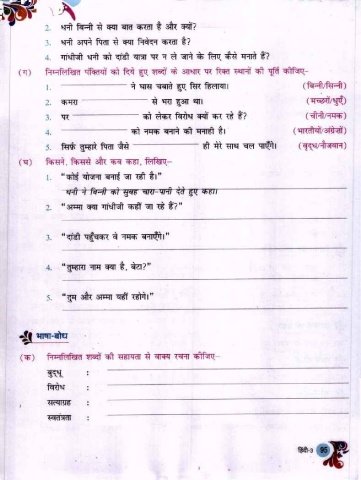 2. धनी बिन्नी से क्या बात करता है और क्यों?
3. धनी अपने पिता से क्या निवेदन करता है?
4. गांधीजी धनी को दांडी यात्रा पर न ले जाने के लिए कैसे मनाते हैं?
(ग) निम्नलिखित पंक्तियों को दिये हुए शब्दों के आधार पर रिक्त स्थानों की पूर्ति कीजिए-
1. ने घास चबाते हुए सिर हिलाया। (बिन्नी/सिन्नी)
2. कमरा से भरा हुआ था। (मच्छरों/धुएँ)
3. पर को लेकर विरोध क्यों कर रहे हैं? (चीनी/नमक)
4. को नमक बनाने की मनाही है। (भारतीयों/अंग्रेजों)
5. सिर्फ़ तुम्हारे पिता जैसे ही मेरे साथ चल पाएँगे। (वृद्ध/नौजवान)
(घ) किसने, किससे और कब कहा, लिखिए-
1. "कोई योजना बनाई जा रही है।"
धनी ने बिन्नी को सुबह चारा-पानी देते हुए कहा।
2. "अम्मा क्या गांधीजी कहीं जा रहे हैं?"
3. "दांडी पहुँचकर वे नमक बनाएँगे।"
4. "तुम्हारा नाम क्या है, बेटा?"
5. "तुम और अम्मा यहीं रहोगे।"
भाषा-बोध
(क) निम्नलिखित शब्दों की सहायता से वाक्य रचना कीजिए-
बुद्धू :
विरोध :
सत्याग्रह :
स्वतंत्रता :
हिंदी-3 95